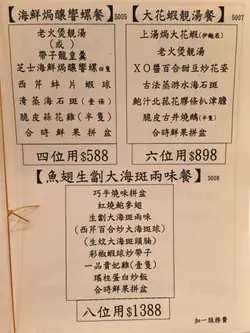 【海鮮焗釀響螺餐】 S005
老火煲靚湯
(或)
帶子龍皇羹
芝士海鮮焗釀響螺(四隻)
西芹蚌片蝦球
清蒸海石斑(壹條)
脆皮蒜花雞(半隻)
合時鮮果拼盆
四位用$588
【大花蝦靚湯餐】 S007
上湯焗大花蝦(伊麵底)
老火煲靚湯
XO醬百合甜豆炒花姿
古法蒸游水海石斑
鮑汁北菇花膠條扒津膽
脆皮古井燒鵝(半隻)
合時鮮果拼盆
六位用$898
【魚翅生劏大海斑兩味餐】 S008
巧手燒味拼盆
紅燒鮑參翅
生劏大海斑兩味
(西芹百合炒大海斑球)
(生炆大海斑頭腩)
彩椒蝦球炒帶子
一品貴妃雞(壹隻)
瑤柱蛋白炒飯
合時鮮果拼盆
八位用$1388
加一服務費